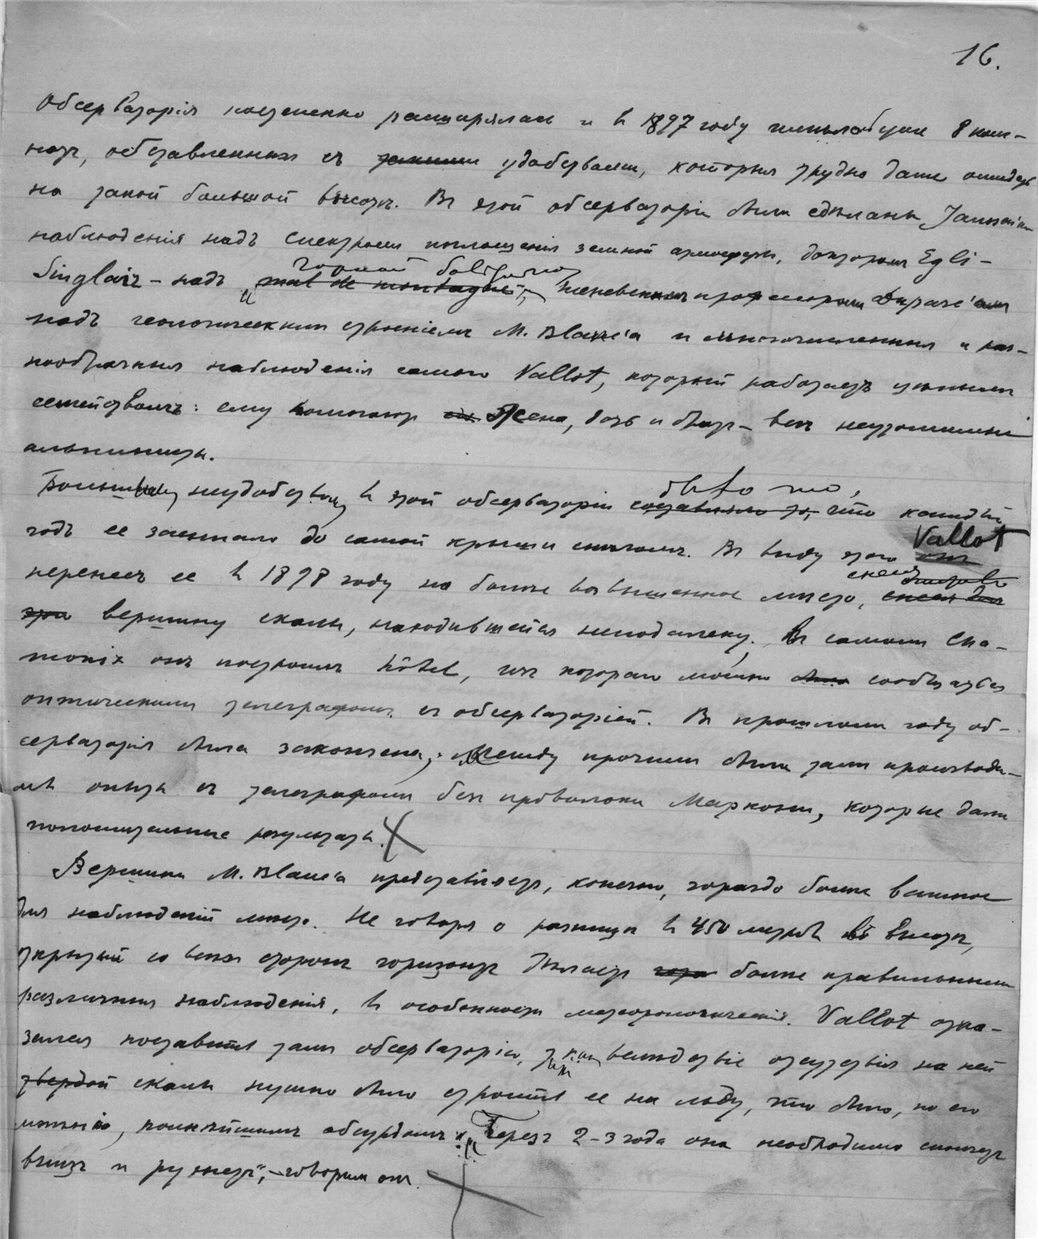 16.
Обсерваторія постепенно расширялась и в 1897 году имѣла уже 8 ком-
нат, обставленных съ удобствами, которыя трудно даже ожидать
на такой большой высотѣ. Въ этой обсерваторіи были сдѣланы
наблюденія надъ спектромъ поглощенія земной атмосферы, докторомъ Egli-
горной болѣзнью
Sinclair - надъ mal de montagne, женевскимъ профессоромъ
надъ геологическимъ строеніемъ M. Blanc'а и многочисленныя и раз-
нообразныя наблюденія самого Vallot, который работаетъ цѣлымъ
семействомъ: ему помогают жена, дочь и - всѣ неутомимые
альпинисты.
было то,
Большим неудобством в этой обсерваторіи составляло то, что каждый
годъ ее заносило до самой крыши снѣгомъ. Въ виду этого Vallot
перенесъ ее в 1898 году на болѣе возвышенное мѣсто,
вершину скалы, находившейся неподалеку. Въ самомъ Cha-
monix онъ построилъ hôtel, изъ котораго можно сообщаться
оптическимъ телеграфомъ съ обсерваторіей. В прошломъ году об-
серваторія была закончена; между прочимъ были тамъ производи-
мы опыты съ телеграфомъ без проволоки Маркони, которые дали
положительные результаты.
Вершина M. Blanc'а представляетъ, конечно, гораздо болѣе важное
для наблюденій мѣсто. Не говоря о разницѣ в 450 метровъ въ высотѣ,
открытый со всѣхъ сторонъ горизонтъ дѣлаетъ болѣе правильными
различныя наблюденія, в особенности метеорологическія. Vallot отка-
зался поставить тамъ обсерваторію, так как вслѣдствіе отсутствія на ней
твердой скалы нужно было строить ее на льду, что было, по его
мнѣнію, полнѣйшимъ абсурдомъ: „Черезъ 2-3 года она необходимо сползетъ
внизъ и рухнетъ", - говорилъ он.